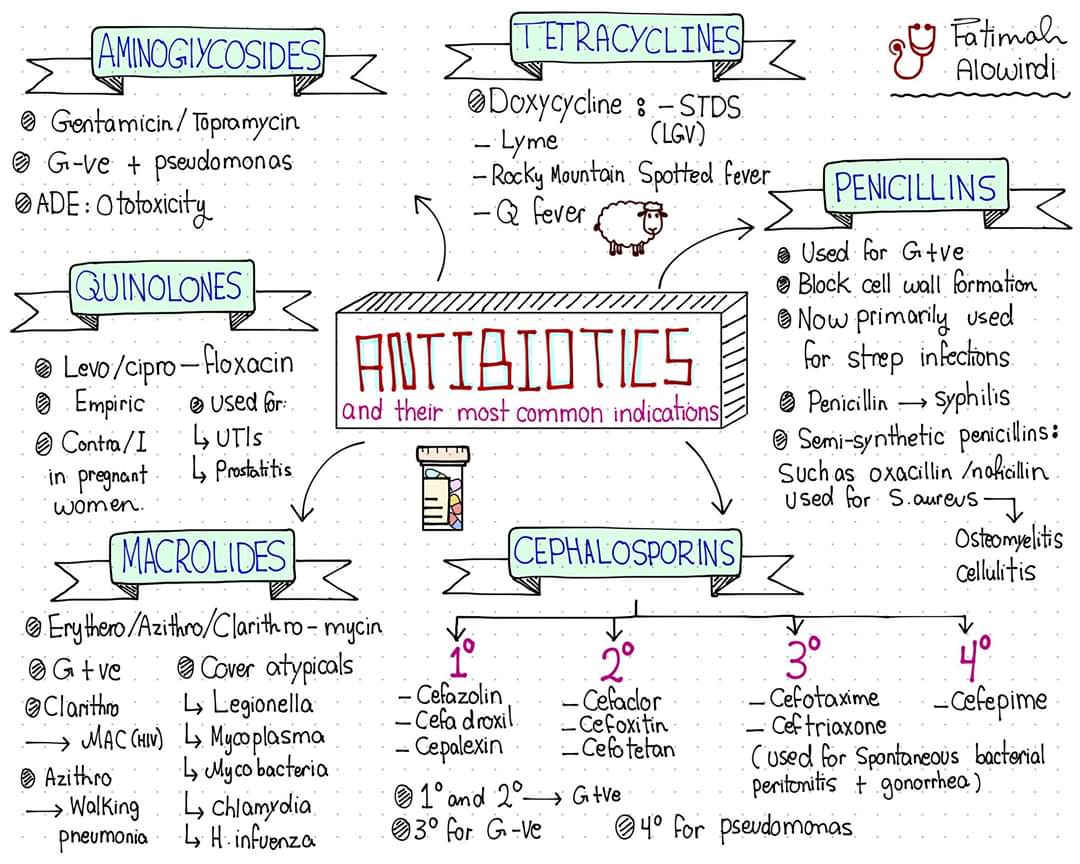 Fatimah
Alowirdi
ANTIBIOTICS
and their most common indications
AMINOGLYCOSIDES
Gentamicin/Topramycin
G-ve + pseudomonas
ADE: Ototoxicity
TETRACYCLINES
Doxycycline : - STDS
(LGV)
- Lyme
- Rocky Mountain Spotted fever
- Q fever
PENICILLINS
Used for G+ve
Block cell wall formation
Now primarily used
for strep infections
Penicillin → syphilis
Semi-synthetic penicillins:
Such as oxacillin/naficillin
used for S.aureus
Osteomyelitis
cellulitis
QUINOLONES
Levo/cipro - floxacin
Empiric
Contra/I
in pregnant
women.
used for:
↳ UTIs
↳ Prostatitis
MACROLIDES
Erythero/Azithro/Clarithro-mycin
G+ve
Clarithro
→ MAC (HIV)
Azithro
→ Walking
pneumonia
Cover atypicals
↳ Legionella
↳ Mycoplasma
↳ Mycobacteria
↳ chlamydia
↳ H. infuenza
CEPHALOSPORINS
1°
- Cefazolin
- Cefadroxil
- Cepalexin
2°
- Cefaclor
- Cefoxitin
- Cefotetan
3°
- Cefotaxime
- Ceftriaxone
(used for Spontaneous bacterial
peritonitis + gonorrhea)
4°
- Cefepime
1° and 2° → G+ve
3° for G-ve
4° for pseudomonas